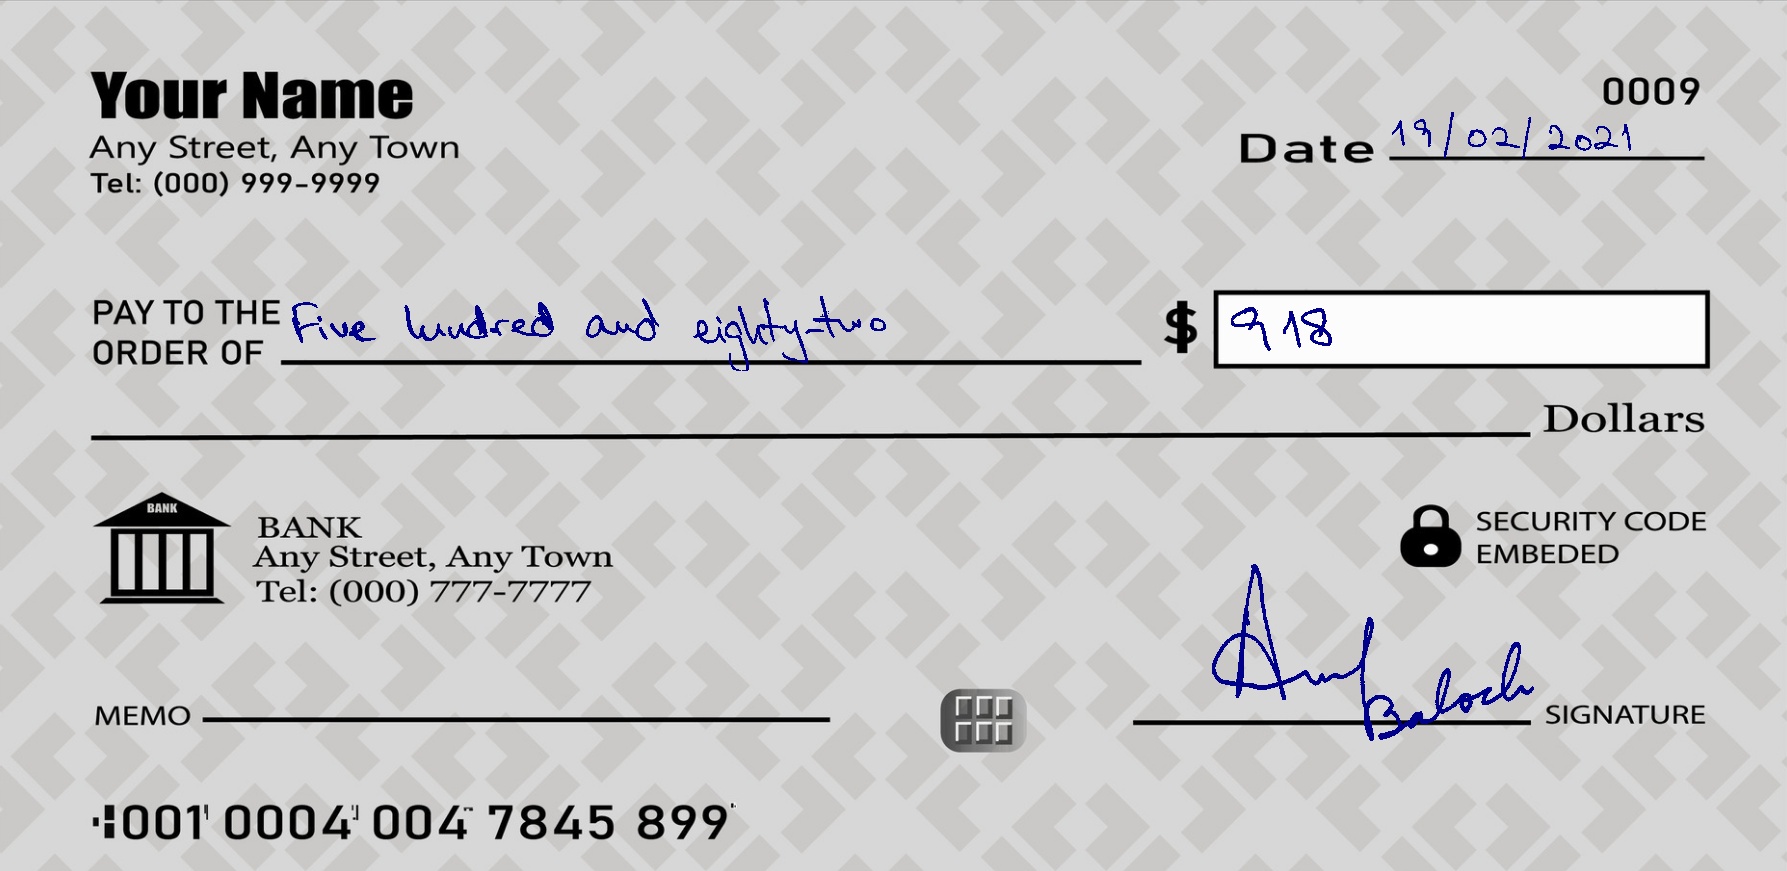 Your Name
Any Street, Any Town
Tel: (000) 999-9999
0009
Date 19/02/2021
PAY TO THE
ORDER OF Five hundred and eighty-two
$ 918
Dollars
BANK
BANK
Any Street, Any Town
Tel: (000) 777-7777
SECURITY CODE
EMBEDED
MEMO
Baloch SIGNATURE
001 0004 004 7845 899